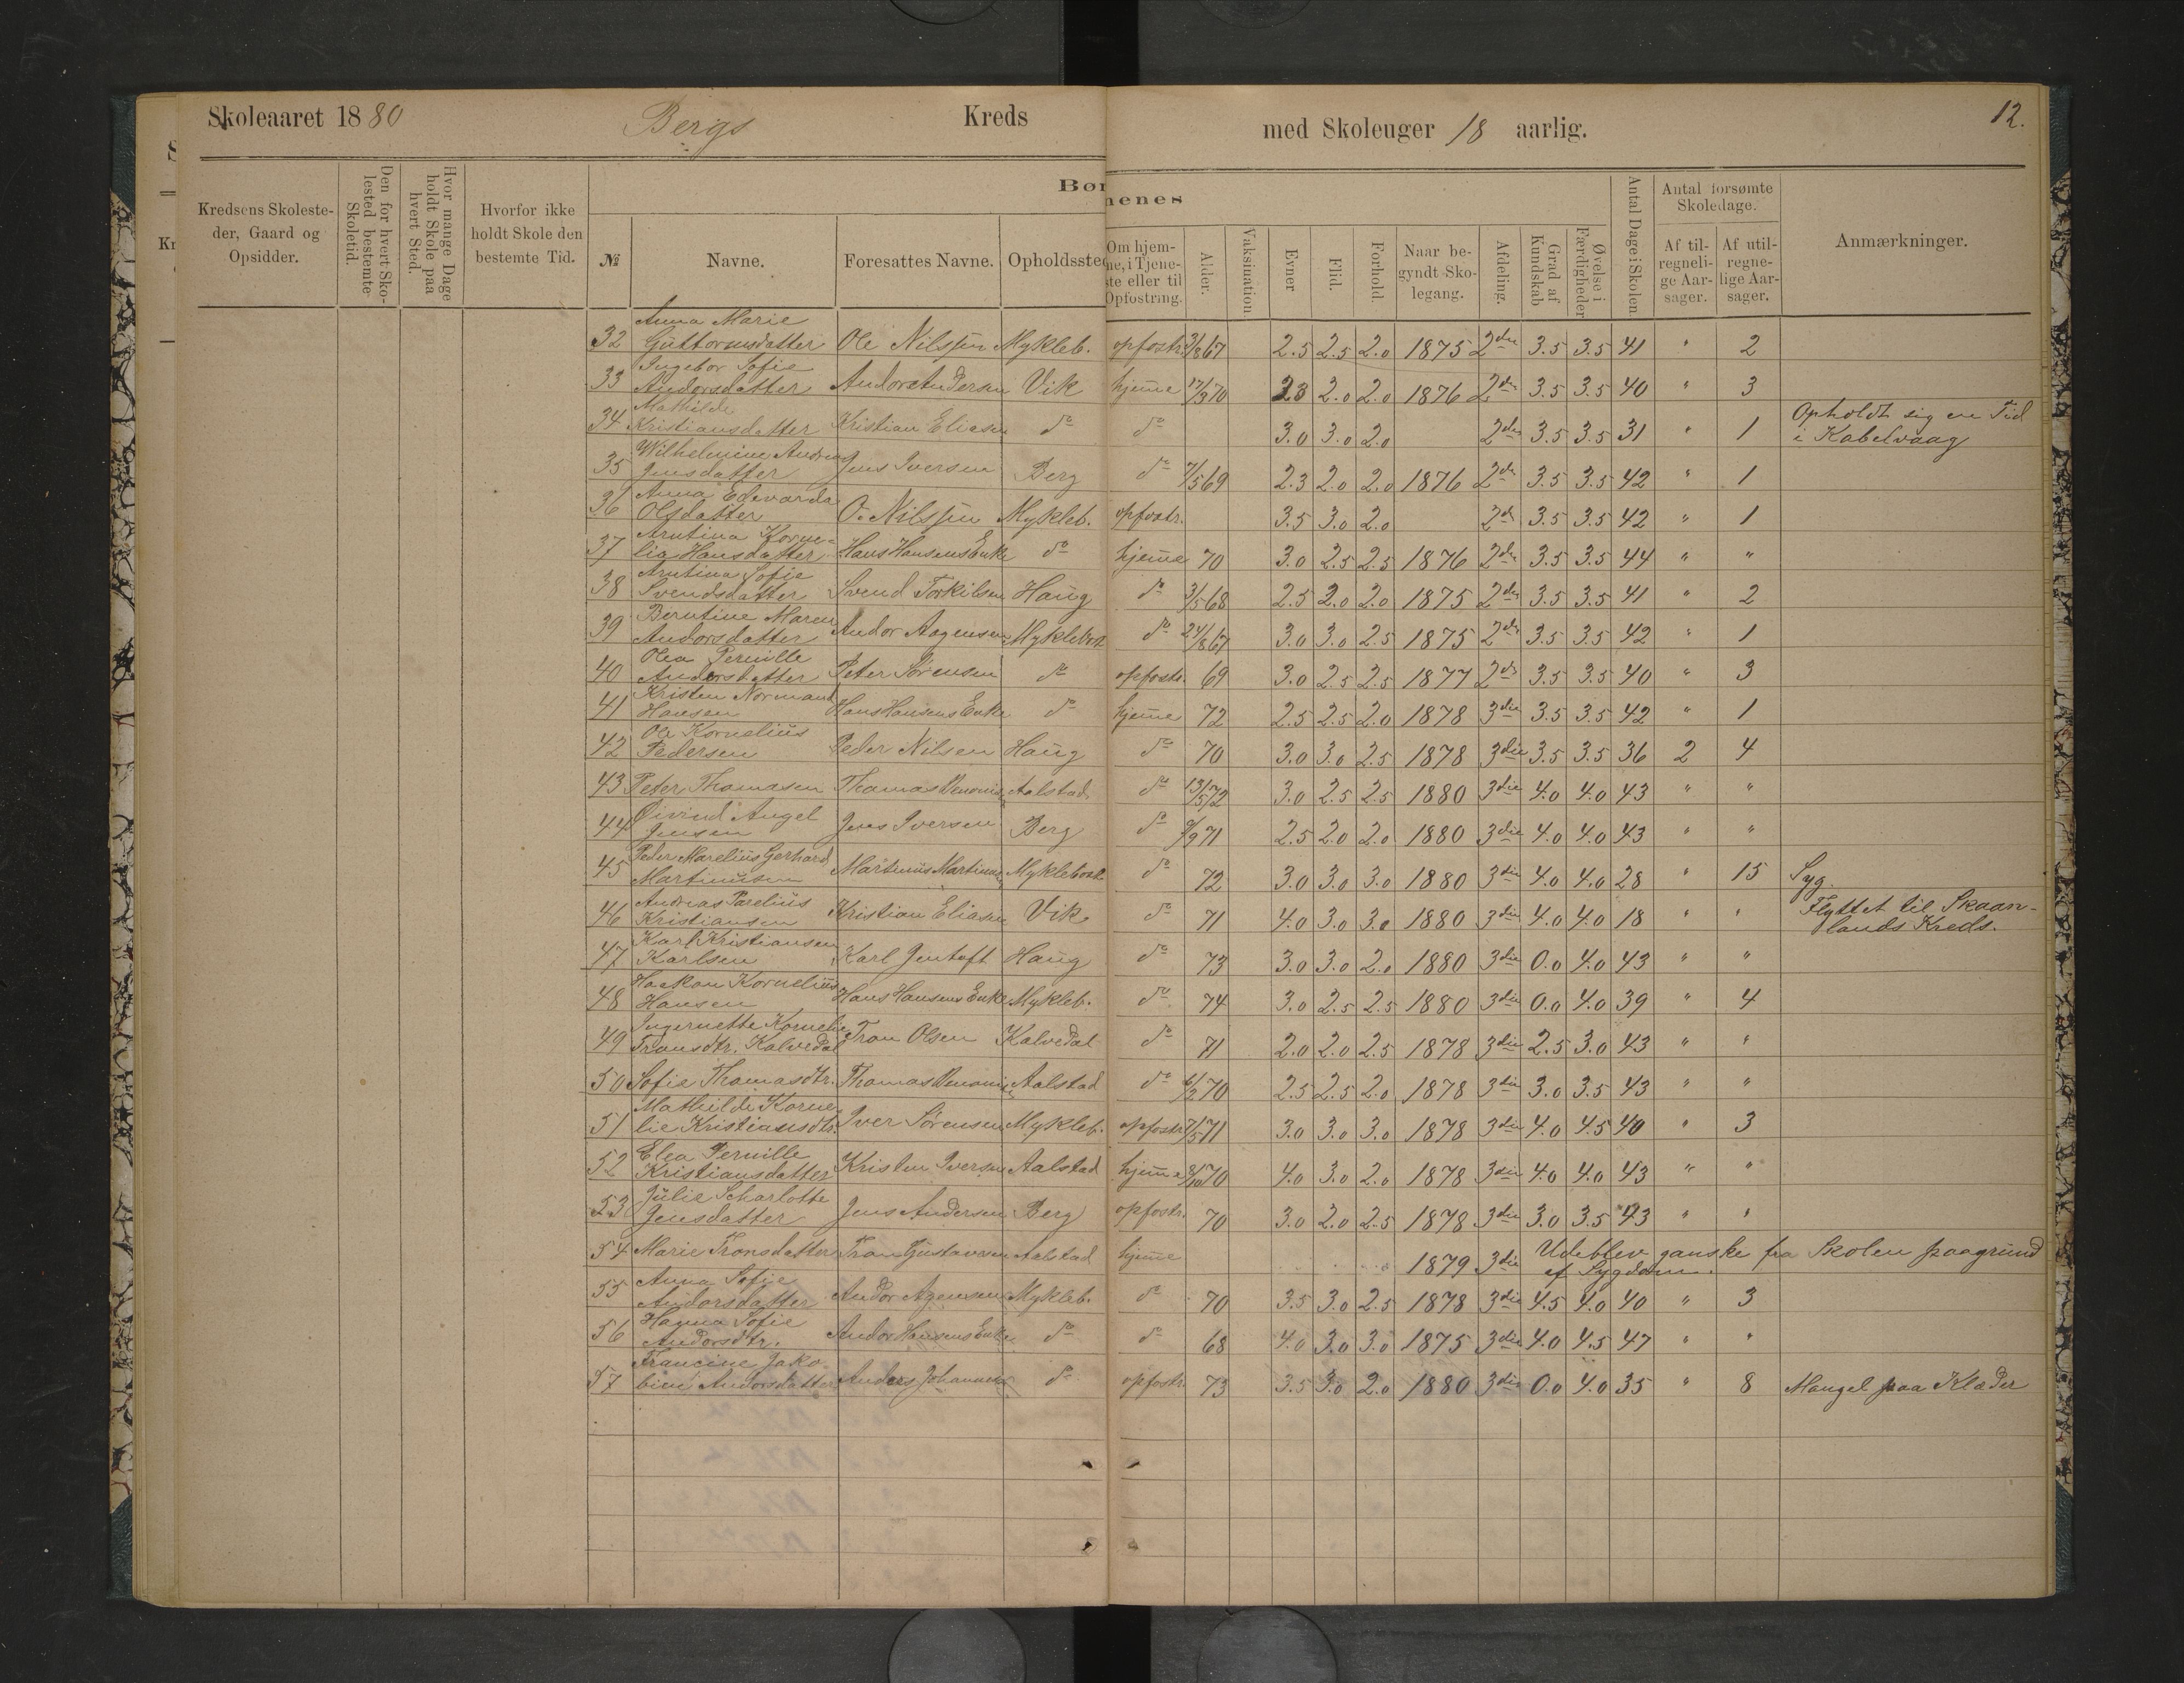 Skoleaaret 1880 Bergs Kreds med Skoleuger 18 aarlig. 12.
Kredsens Skolesteder, Gaard og Opsidder.
Den for hvert Skolested bestemte Skoletid.
Hvor mange Dage holdt Skole paa hvert Sted.
Hvorfor ikke holdt Skole den bestemte Tid.
Børnenes
№ Navne. Foresattes Navne. Opholdssted
Om hjemme, i Tjeneste eller til Opfostring.
Alder.
Vaksination
Evner
Flid.
Forhold.
Naar begyndt Skolegang.
Afdeling.
Grad af Kundskab
Øvelse i Færdigheder
Antal Dage i Skolen
Antal forsømte Skoledage.
Af tilregnelige Aarsager.
Af utilregnelige Aarsager.
Anmærkninger.
32 Anna Marie Guttormsdatter Ole Nilssen Mykleb. opfostr. 3/8 67 2.5 2.5 2.0 1875 2den 3.5 3.5 41 " 2
33 Ingebor Sofie Andorsdatter Andor Andersen Vik hjem̄e 17/3 70 23 2.0 2.0 1876 2den 3.5 3.5 40 " 3
34 Mathilde Kristiansdatter Kristian Eliasen do do 3.0 3.0 2.0 2den 3.5 3.5 31 " 1 Opholdt sig en Tid i Kabelvaag
35 Wilhelmine Andrea Jensdatter Jens Iversen Berg do 7/5 69 2.3 2.0 2.0 1876 2den 3.5 3.5 42 " 1
36 Anna Edevarda Olsdatter O. Nilssen Mykleb. opfostr. 3.5 3.0 2.0 2d 3.5 3.5 42 " 1
37 Arntina Kornelia Hansdatter Hans Hansens Enke do hjem̄e 70 3.0 2.5 2.5 1876 2den 3.5 3.5 44 " "
38 Arntina Sofie Svendsdatter Svend Torkilsen Haug do 3/5 68 2.5 2.0 2.0 1875 2den 3.5 3.5 41 " 2
39 Berntine Maren Andorsdatter Andor Aagensen Myklebost do 24/8 67 3.0 3.0 2.5 1875 2den 3.5 3.5 42 " 1
40 Olea Pernille Andersdatter Peter Sørensen do opfostr. 69 3.0 2.5 2.5 1877 2den 3.5 3.5 40 " 3
41 Kristen Normand Hansen Hans Hansens Enke do hjem̄e 72 2.5 2.5 2.0 1878 3die 3.5 3.5 42 " 1
42 Ole Kornelius Pedersen Peder Nilsen Haug do 70 3.0 3.0 2.5 1878 3die 3.5 3.5 36 2 4
43 Peter Thomasen Thomas Aalstad do 13/5 72 3.0 2.5 2.5 1880 3die 4.0 4.0 43 " "
44 Øivind Angel Jensen Jens Iversen Berg do 9/9 71 2.5 2.0 2.0 1880 3die 4.0 4.0 43 " "
45 Peder Marelius Gerhard Martinusen Martinus Martinusen Myklebost. do 72 3.0 3.0 3.0 1880 3die 4.0 4.0 28 " 15 Syg.
46 Andreas Parelius Kristiansen Kristian Eliasen Vik do 71 4.0 3.0 3.0 1880 3die 4.0 4.0 18 " " Flyttet til Skaanlands Kreds.
47 Karl Kristiansen Karlsen Karl Jentoft Haug do 73 3.0 3.0 2.0 1880 3die 0.0 4.0 43 " "
48 Haakon Kornelius Hansen Hans Hansens Enke Mykleb. do 74 3.0 2.5 2.5 1880 3die 0.0 4.0 39 " 4
49 Ingernette Kornelie Transdtr. Kalvedal Tran Olsen Kalvedal do 71 2.0 2.0 2.5 1878 3die 2.5 3.0 43 " "
50 Sofie Thomasdtr. Thomas Aalstad do 6/2 70 2.5 2.5 2.0 1878 3die 3.0 3.5 43 " "
51 Mathilde Kornelie Kristiansdtr. Iver Sørensen Mykleb. opfostr. 7/5 71 3.0 3.0 3.0 1878 3die 4.0 4.5 40 " 3
52 Elea Pernille Kristiansdatter Kristen Iversen Aalstad hjem̄e 8/10 70 4.0 3.0 2.0 1878 3die 4.0 4.0 43 " "
53 Julie Scharlotte Jensdatter Jens Andersen Berg opfostr. 70 3.0 2.0 2.5 1878 3die 3.0 3.5 43 " "
54 Marie Transdatter Tran Gustavsen Aalstad hjem̄e 1879 3die Udeblev ganske fra Skolen paagrund af Sygdom.
55 Anna Sofie Andorsdatter Andor Agensen Mykleb. do 70 3.5 3.0 2.5 1878 3die 4.5 4.0 40 " 3
56 Hanna Sofie Andorsdtr. Andor Hansens Enke do do 68 4.0 3.0 3.0 1875 3die 4.0 4.5 47 " "
57 Francine Jakobine Andorsdatter Anders Johannesen do opfostr. 73 3.5 3.0 2.0 1880 3die 0.0 4.0 35 " 8 Mangel paa Klæder